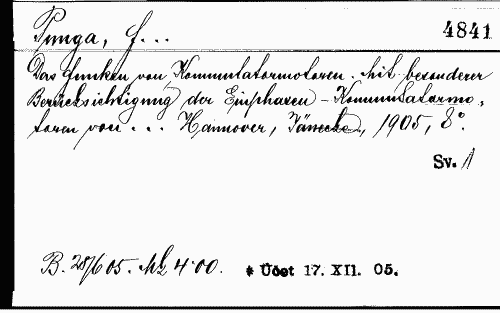 Punga, F...
4841
Das Funken von Kommutatormotoren. Mit besonderer
Berücksichtigung der Einphasen-Kommutatormo-
toren von ... Hannover, Jänecke, 1905, 8°.
Sv. 1
B. 28/6 05. Mk 4·00.
* Účet 17. XII. 05.